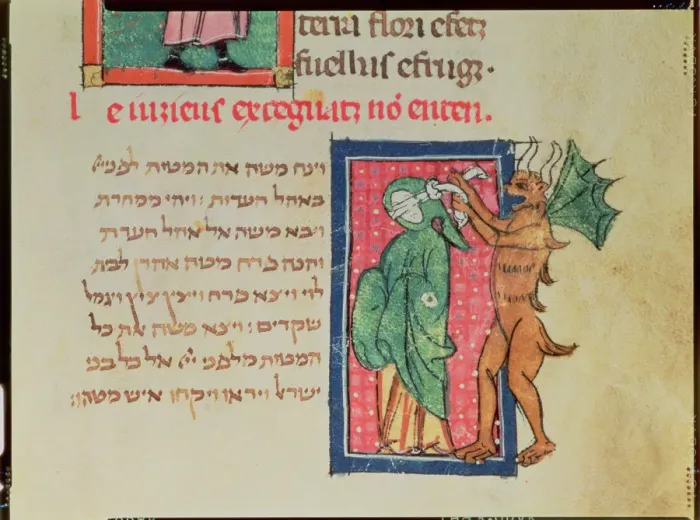 terra flori efetz
fuelhs efrugz ·
Le iuzieus excegatz nō enten.
וינח משה את המטות לפני יי
באהל העדות : ויהי ממחרת
ויבא משה אל אהל העדת
והנה פרח מטה אהרן לבית
לוי ויצא פרח ויציץ ציץ ויגמל
שקדים : ויצא משה את כל
המטות מלפני יי אל כל בני
ישראל ויראו ויקחו איש מטהו :